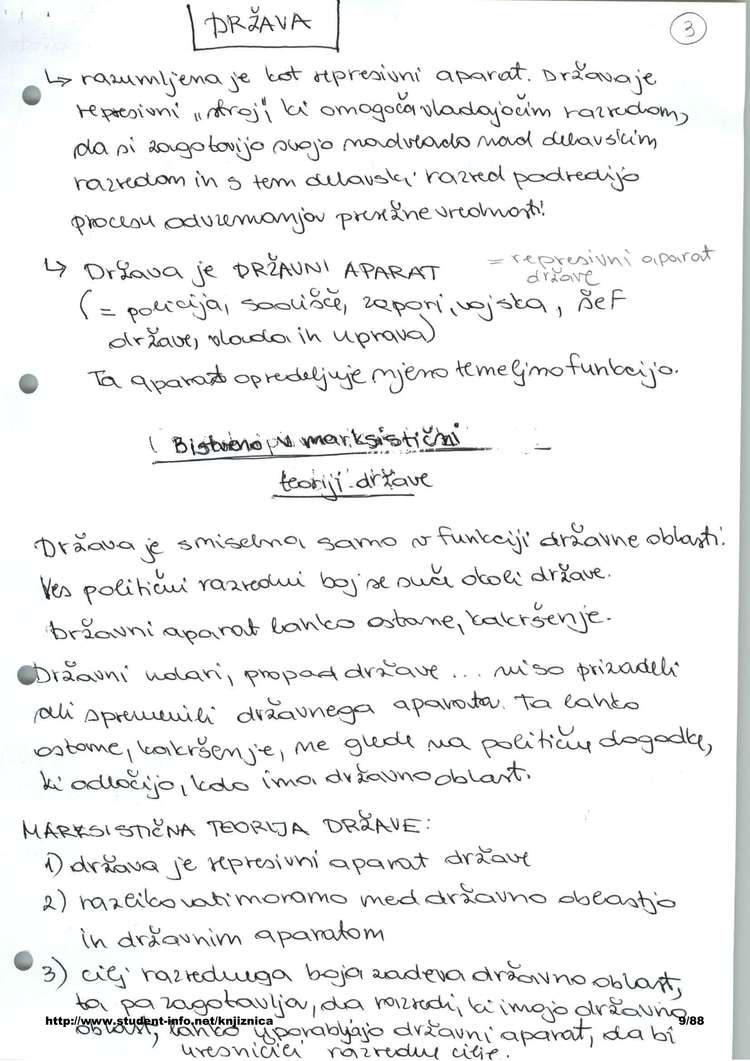 DRŽAVA
3
↳ razumljena je kot represivni aparat. Država je
represivni "stroj", ki omogoča vladajočim razredom,
da si zagotovijo svojo nadvlado nad delavskim
razredom in s tem delavski razred podredijo
procesu odvzemanjov presežne vrednosti!
↳ Država je DRŽAVNI APARAT
= represivni aparat
države
(= policija, sodišče, zapori, vojska, šef
države, vlada in uprava)
Ta aparat opredeljuje njeno temeljno funkcijo.
( Bistveno v marksistični
teoriji države
Država je smiselna samo v funkciji državne oblasti!
Ves politični razredni boj se suče okoli države.
Državni aparat lahko ostane, kakršen je.
Državni udari, propad države ... niso prizadeli
ali spremenili državnega aparata. Ta lahko
ostane, kakršen je, ne glede na politične dogodke,
ki odločijo, kdo ima državno oblast.
MARKSISTIČNA TEORIJA DRŽAVE:
1) država je represivni aparat države
2) razlikovati moramo med državno oblastjo
in državnim aparatom
3) cilj razrednega boja zadeva državno oblast,
ta pa zagotavlja, da razredi, ki imajo državno
http://www.student-info.net/knjiznica
9/88
oblast, lahko uporabljajo državni aparat, da bi
uresničili razredne cilje.